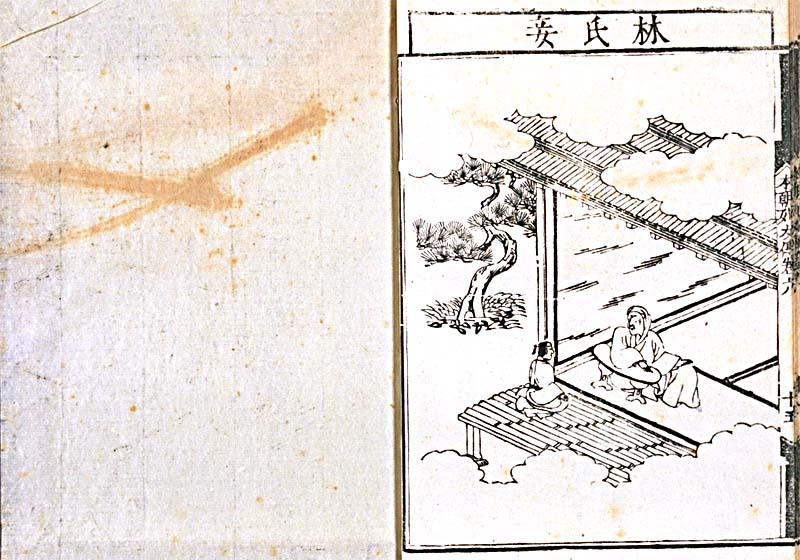 林氏妾
本朝列女傳卷六
十五